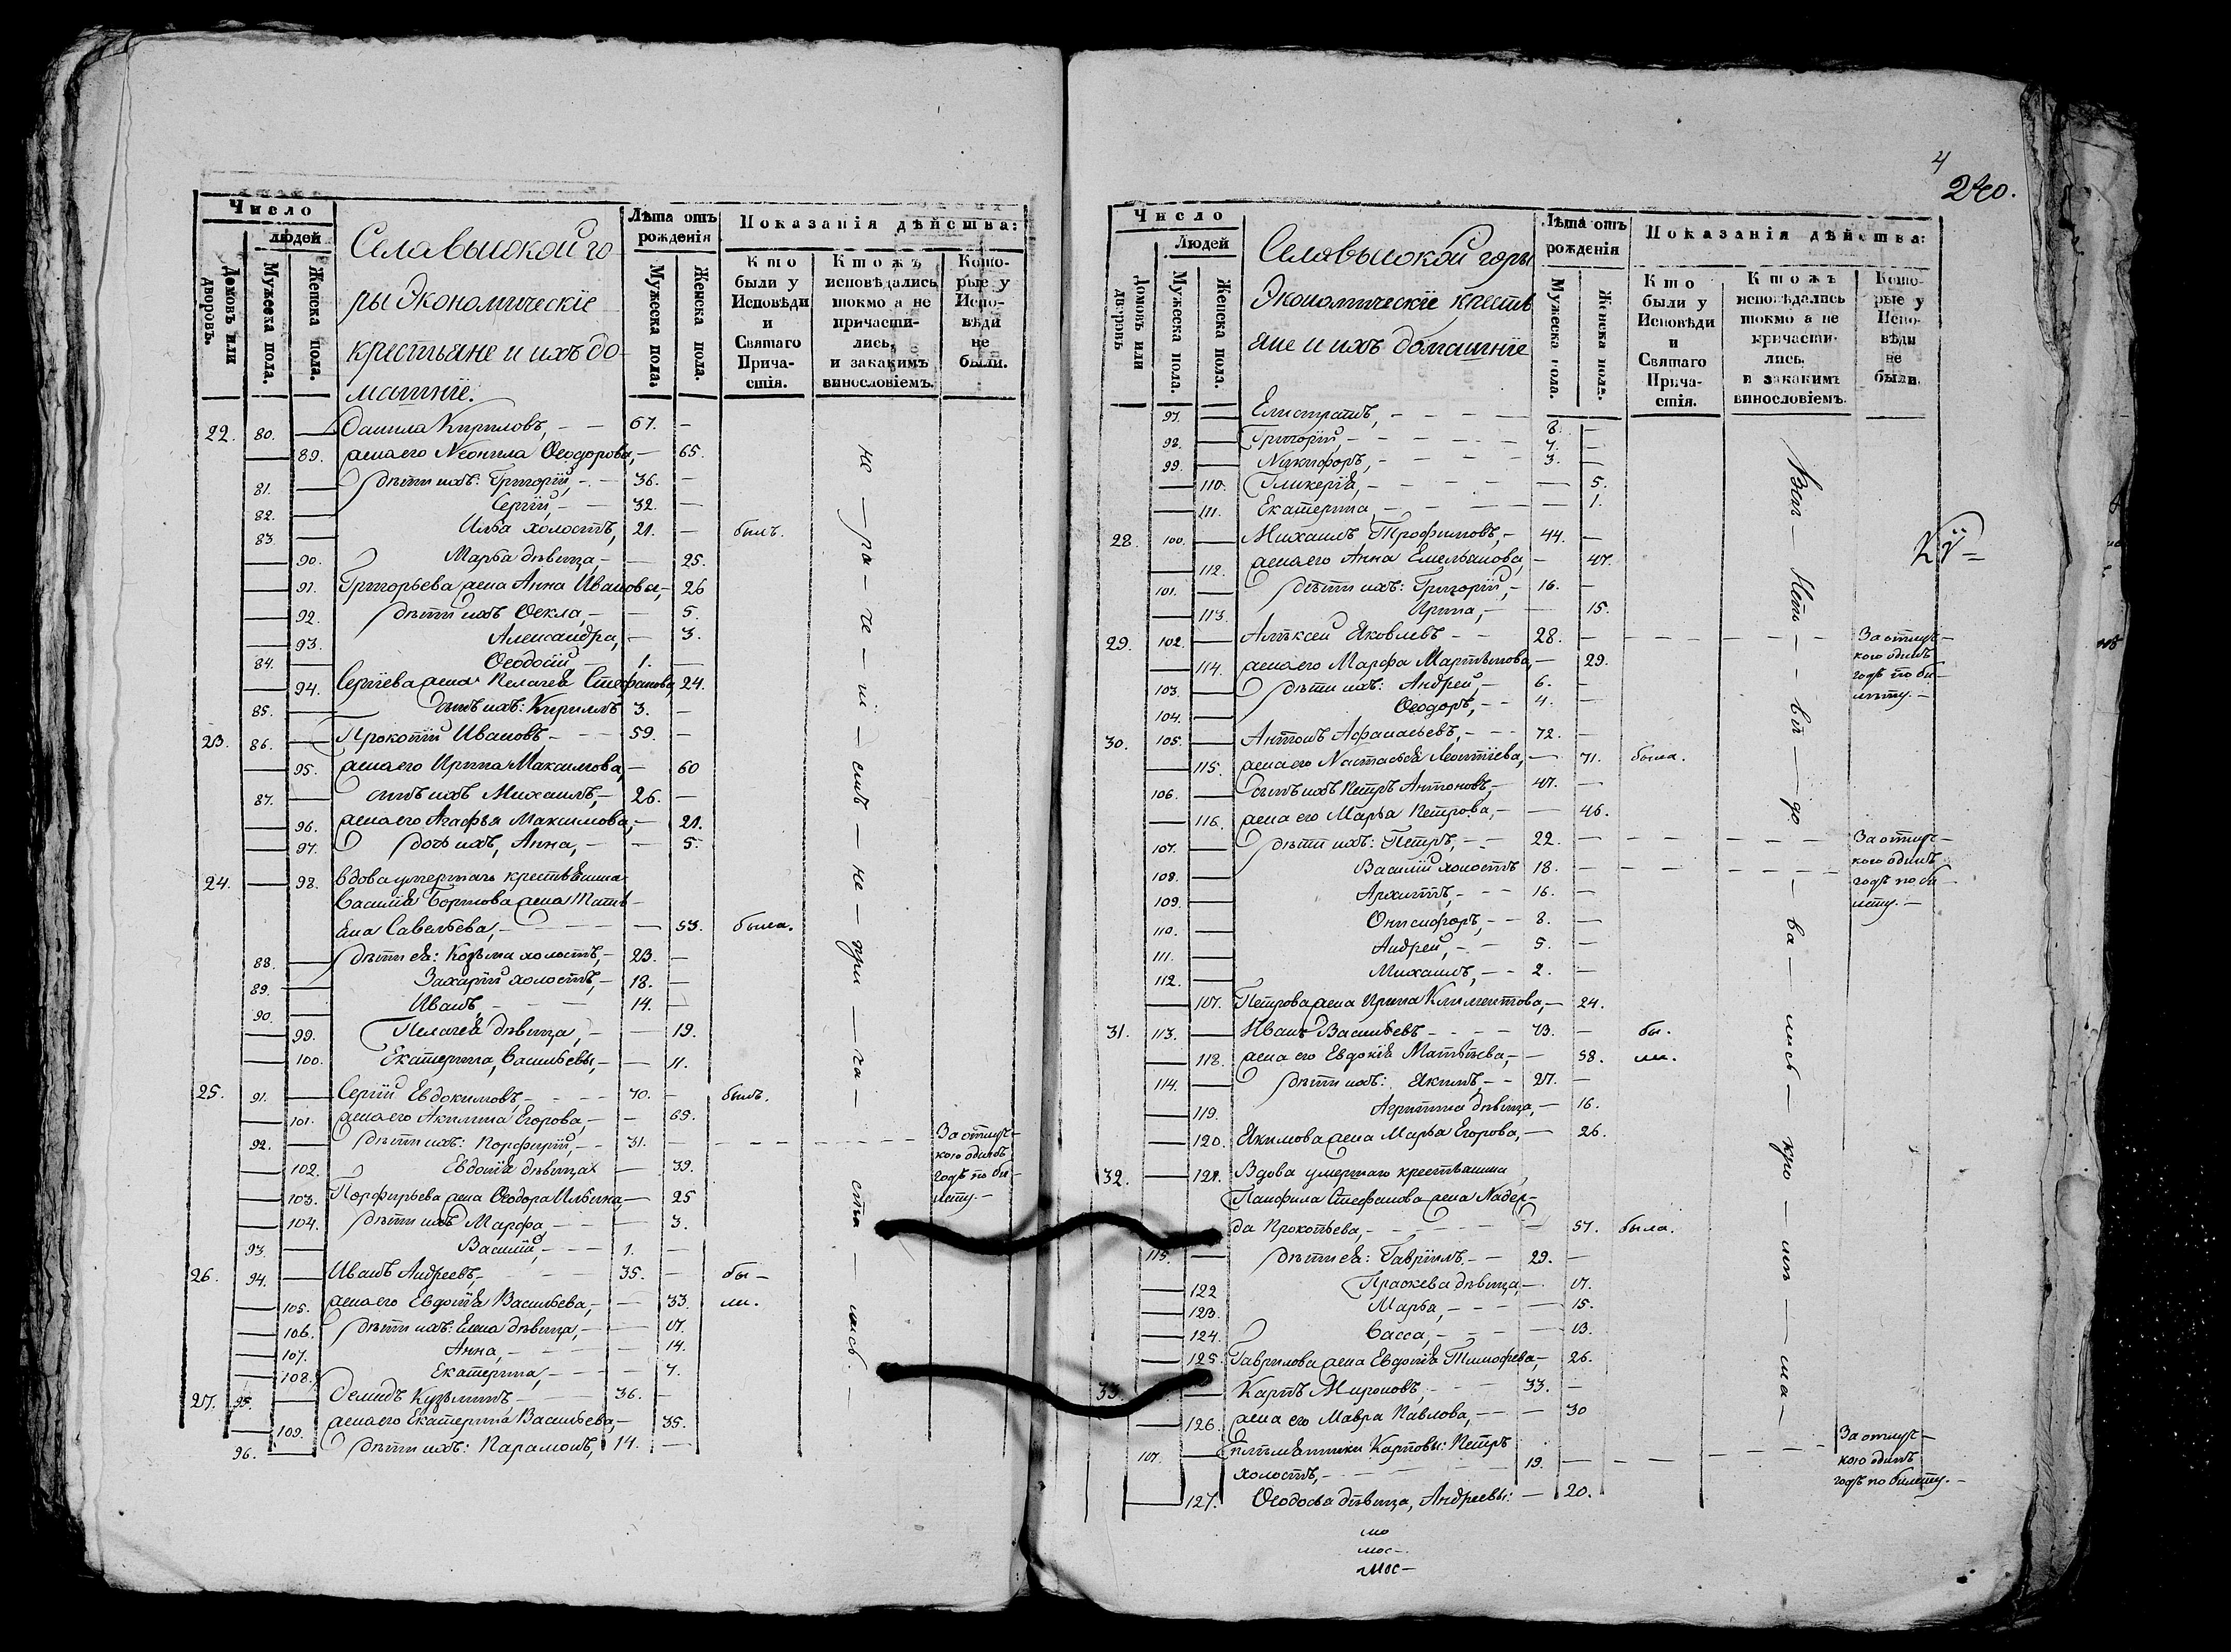 Число
людей
Домовъ или дворовъ.
Мужеска пола.
Женска пола.
Села высокой го-
ры Экономическїе
крестьяне и ихъ до-
машнїе.
Лѣта отъ рожденїя
Мужеска пола.
Женска пола.
Показанїя дѣйства:
Кто были у Исповѣди и Святаго Прича-стїя.
Ктожъ исповѣдались токмо а не причасти-лись, и закакимъ винословїемъ.
Кото-рые у Испо-вѣди не были.
22. 80. — Данила Кириловъ, — 67. —
— 89. жена его Неонила Ѳеодорова, — 65.
81. — дѣти ихъ: Григорїй, — 36. —
82. — Сергїй, — 32. —
83. — Илья холостъ, 21. — былъ.
— 90. Марья дѣвица, — 25.
— 91. Григорьева жена Анна Иванова, — 26
— 92. дѣти ихъ Ѳекла, — 5.
— 93. Александра, — 3.
84. — Ѳеодосїй — 1. —
— 94. Сергїева жена Пелагея Стефанова 24.
85. — сынъ ихъ: Кириллъ 3. —
23. 86. — Прокопїй Ивановъ — 59. —
— 95. жена его Ирина Максимова, — 60
87. — сынъ ихъ Михаилъ, — 26. —
— 96. жена его Агафья Максимова, — 21.
— 97. дочь ихъ, Анна, — 5.
24. — 98. вдова умершаго крестьянина
Василїя Борисова жена Татья-
на Савельева, — 53. была.
88. — дѣти ея: Козьма холостъ, — 23. —
89. — Захарїй холостъ, — 18. —
90. — Иванъ, — 14. —
— 99. Пелагея дѣвица, — 19.
— 100. Екатерина, Васильевы, — 11.
25. 91. — Сергїй Евдокимовъ — 70. — былъ.
— 101. жена его Акилина Егорова, — 69.
92. — дѣти ихъ: Порфирїй, — 31. — За отлуч-
кою одинъ
годъ по би-
лету. —
— 102. Евдокїя дѣвица — 39.
— 103. Порфирьева жена Ѳеодора Ильина — 25
— 104. дѣти ихъ Марфа, — 3.
93. — Василїй, — 1. —
26. 94. — Иванъ Андреевъ, — 35. — бы-
— 105. жена его Евдокїя Васильева, — 33. ли.
— 106. дѣти ихъ: Елена дѣвица, — 17.
— 107. Анна, — 14.
— 108. Екатерина, — 7.
27. 95. — Демидъ Кузьминъ, — 36. —
— 109. жена его Екатерина Васильева, — 35.
96. — дѣти ихъ: Парамонъ, 14. —
4
240.
Число
Людей
Домовъ или дворовъ
Мужеска пола.
Женска пола.
Села высокой горы
Экономическїе кресть
яне и ихъ домашнїе
Лѣта отъ рожденїя
Мужеска пола.
Женска пола.
Показанїя дѣйства:
Кто были у Исповѣди и Святаго Прича-стїя.
Ктожъ исповѣдались токмо а не причасти-лись, и закакимъ винословїемъ.
Кото-рые у Испо-вѣди не были.
97. — Елистратъ, — 8. —
98. — Григорїй, — 7. —
99. — Никифоръ, — 3. —
— 110. Гликерїя, — 5.
— 111. Екатерина, — 1.
28. 100. — Михаилъ Трофимовъ, — 44. —
— 112. жена его Анна Емельянова, — 47.
101. — дѣти ихъ: Григорїй, — 16. —
— 113. Ирина, — 15.
29. 102. — Алѣксей Яковлевъ — 28. — За отлуч-
кою одинъ
годъ по би-
лѣту. —
— 114. жена его Марфа Мартынова, — 29.
103. — дѣти ихъ: Андрей, — 6. —
104. — Ѳеодоръ, — 4. —
30. 105. — Антонъ Афанасьевъ, — 72. —
— 115. жена его Настасья Леонтїева, — 71. была.
106. — сынъ ихъ Петръ Антоновъ, — 47. —
— 116. жена его Марья Петрова, — 46.
107. — дѣти ихъ: Петръ, — 22. — За отлуч-
кою одинъ
годъ по би-
лету. —
108. — Василїй холостъ 18. —
109. — Архиппъ, — 16. —
110. — Онисифоръ, — 8. —
111. — Андрей, — 5. —
112. — Михаилъ, — 2. —
— 107. Петрова жена Ирина Климентова, — 24.
31. 113. — Иванъ Васильевъ — 73. — бы.
— 118. жена его Евдокїя Матвѣева, — 58. ли.
114. — дѣти ихъ: Якимъ, — 27. —
— 119. Агрипина дѣвица, — 16.
— 120. Якимова жена Марья Егорова, — 26.
32. — 121. Вдова умершаго крестьянина
Панфила Стефанова жена Надеж-
да Прокопьева, — 57. была.
115. — дѣти ея: Гаврїилъ — 29. —
— 122 Прасковья дѣвица, — 17.
— 123. Марья, — 15.
— 124. Васса, — 13.
— 125. Гаврилова жена Евдокїя Тимофеева, — 26.
33. — Карпъ Мироновъ, — 33. —
— 126. жена его Мавра Павлова, — 30
107. — племянники Карповы: Петръ
холостъ, — 19. — За отлуч-
кою одинъ
годъ по билету. —
— 127. Ѳеодосья дѣвица, Андреевы: — 20.
мос-